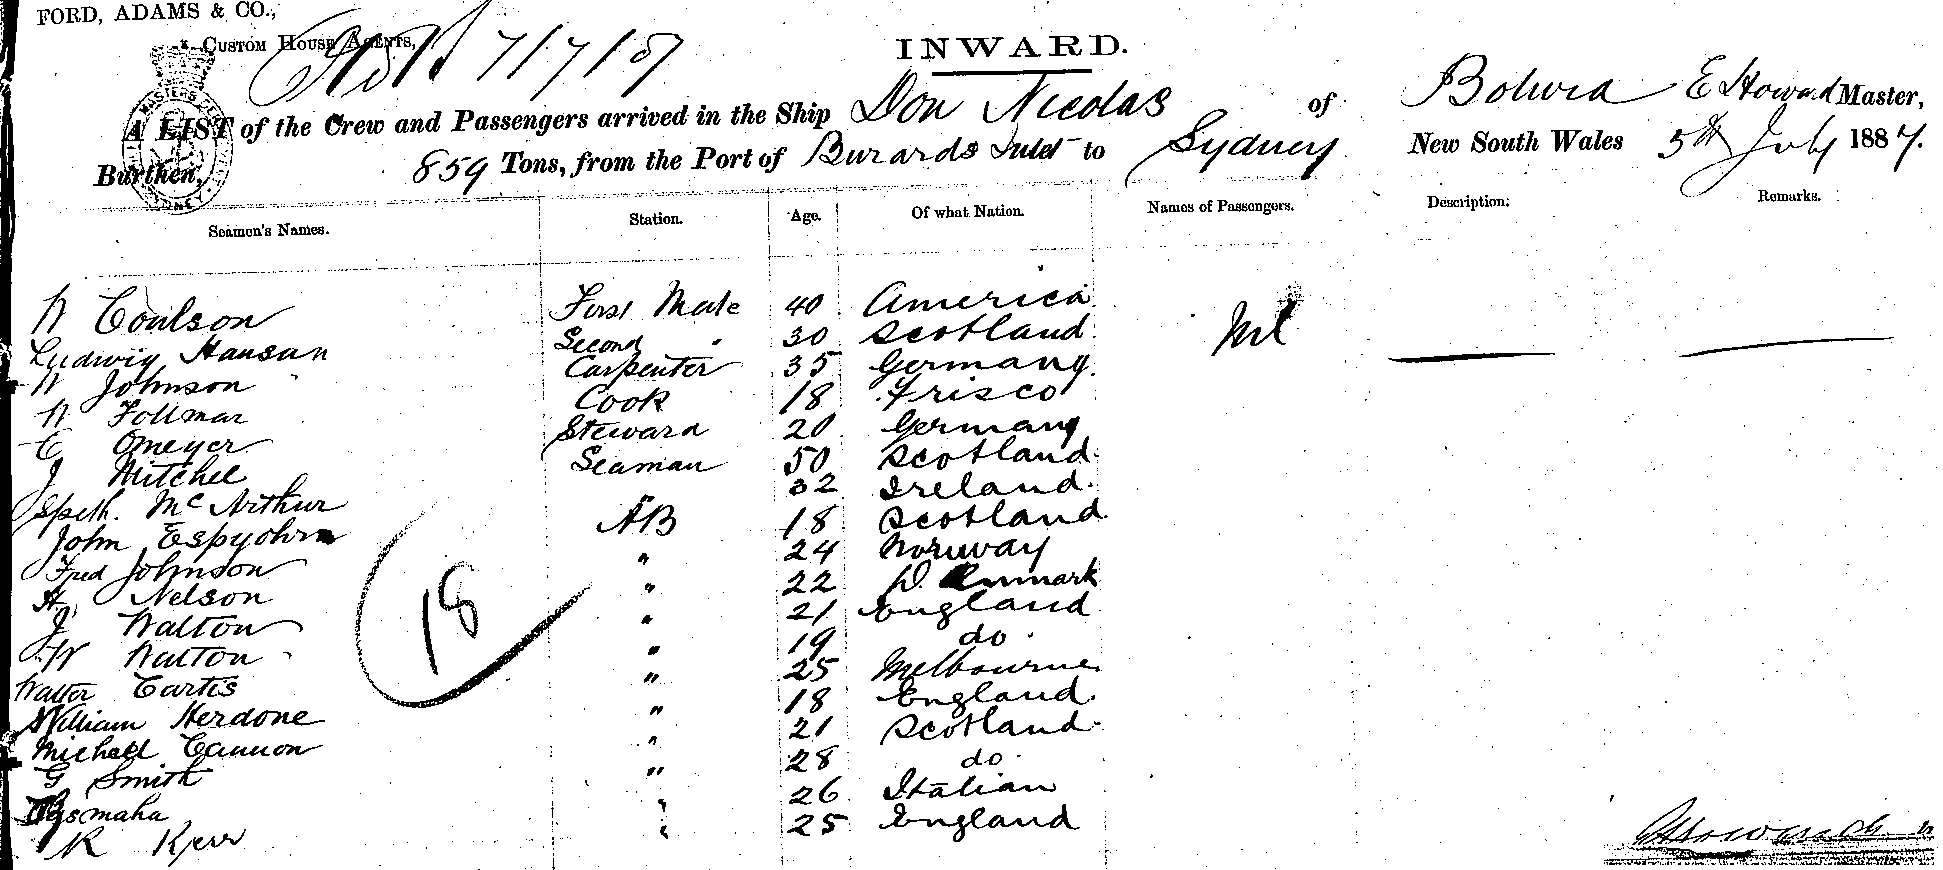 FORD, ADAMS & CO.,
CUSTOM HOUSE AGENTS,
7/7/87
INWARD.
A LIST of the Crew and Passengers arrived in the Ship Don Nicolas of Bolivia E Howard Master,
Burthen, 859 Tons, from the Port of Burards Inlet to Sydney New South Wales 5th July 1887.
Seamen's Names. Station. Age. Of what Nation. Names of Passengers. Description. Remarks.
W Coulson First Mate 40 America Nil
Ludwig Hansan Second " 30 Scotland
W Johnson Carpenter 35 Germany
W Follmar Cook 18 Frisco
C Omeyer Steward 20 Germany
J Mitchel Seaman 50 Scotland
Mc Arthur 32 Ireland
John Espyohrn AB 18 Scotland
Fred Johnson " 24 Norway
H Nelson " 22 Denmark
J Walton " 21 England
W Walton " 19 do
Walter Curtis " 25 Melbourne
William Herdone " 18 England
Michael Cannon " 21 Scotland
G Smith " 28 do
" 26 Italian
R Kerr " 25 England
18